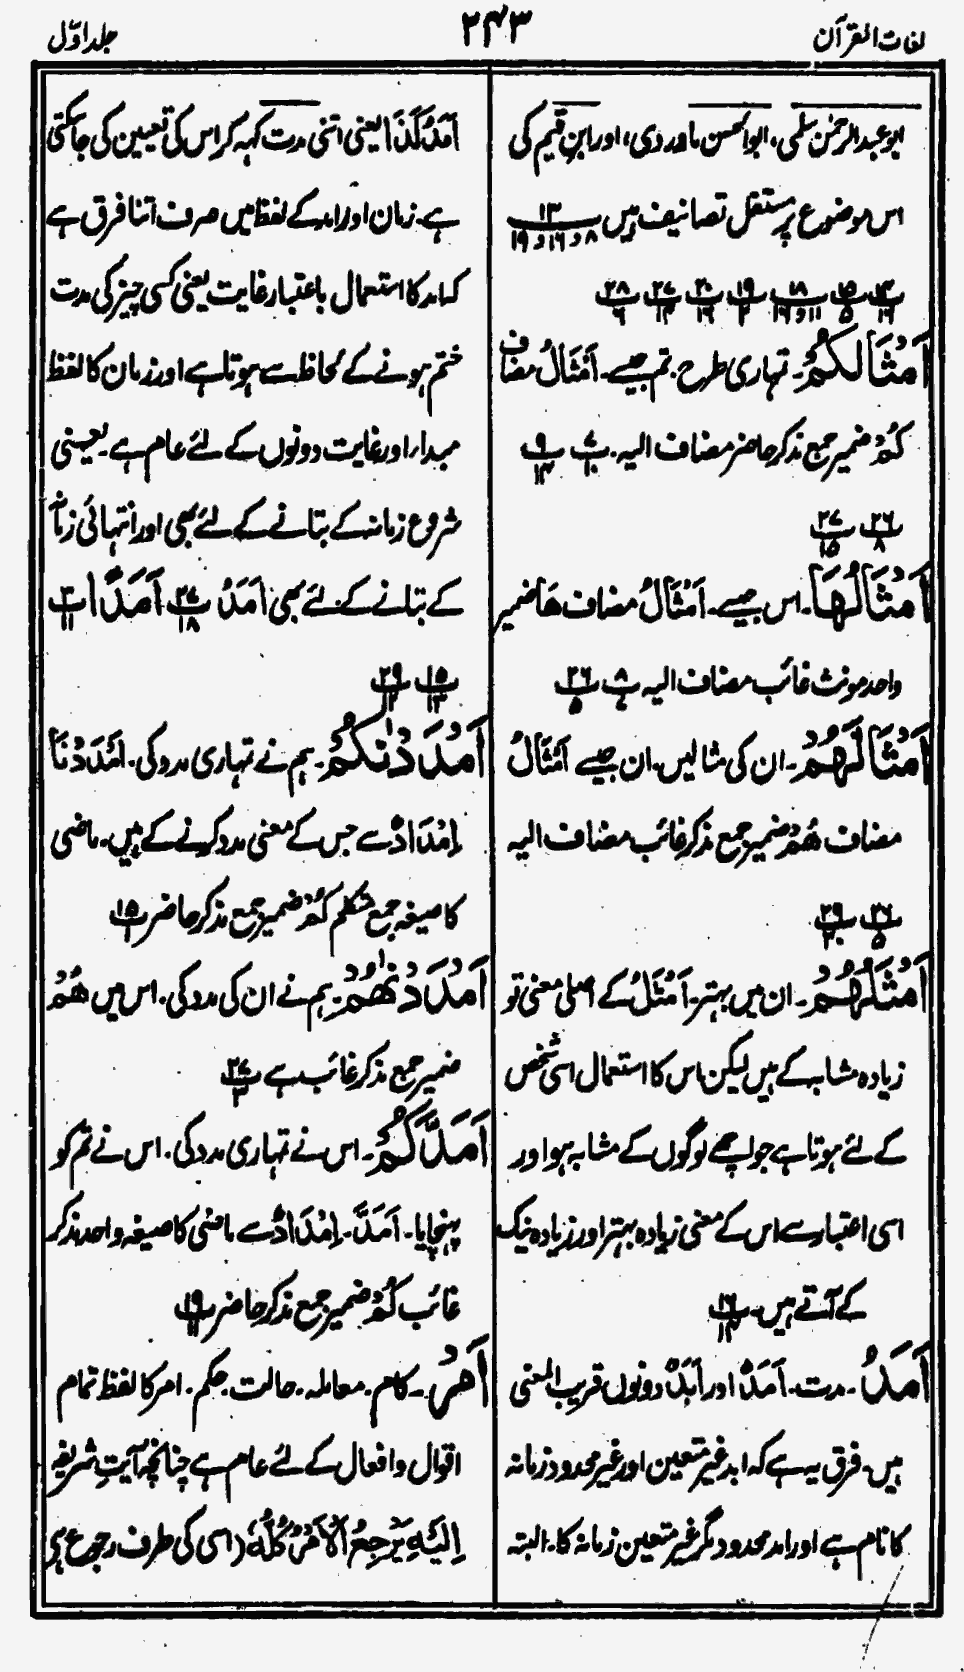 لغات القرآن
۲۴۳
جلد اوّل
ابو عبد الرحمٰن سلمی، ابو الحسن ماوردی، اور ابن قیم کی
اس موضوع پر مستقل تصانیف ہیں ۱۳/۸ و ۱۶ و ۱۹
۱۴/۱۶ ۱۵/۵ ۱۸/۱۱ و ۱۶ ۱۹/۲ ۲۰/۱۶ ۲۷/۱۳ ۲۸/۶
اَمْثَالُكُمْ۔ تمہاری طرح۔ تم جیسے۔ اَمْثَالُ مضاف
كُمْ ضمیر جمع مذکر حاضر مضاف الیہ۔ ۷/۱۰ ۹/۱۴
۲۶/۸ ۲۷/۱۵
اَمْثَالُهَا۔ اس جیسے۔ اَمْثَالُ مضاف هَا ضمیر
واحد مونث غائب مضاف الیہ ۸/۷ ۲۶/۵
اَمْثَالَهُمْ۔ ان کی مثالیں۔ ان جیسے اَمْثَالُ
مضاف هُمْ ضمیر جمع مذکر غائب مضاف الیہ
۲۶/۵ ۲۹/۲۰
اَمْثَلُهُمْ۔ ان میں بہتر۔ اَمْثَلُ کے اصلی معنی تو
زیادہ مشابہ کے ہیں لیکن اس کا استعمال اسی شخص
کے لئے ہوتا ہے جو اچھے لوگوں کے مشابہ ہو اور
اسی اعتبار سے اس کے معنی زیادہ بہتر اور زیادہ نیک
کے آتے ہیں۔ ۱۶/۱۴
اَمَدٌ۔ مدت۔ اَمَدٌ اور اَبَدٌ دونوں قریب المعنی
ہیں۔ فرق یہ ہے کہ ابد غیر متعین اور غیر محدود زمانہ
کا نام ہے اور امد محدود مگر غیر متعین زمانہ کا۔ البتہ
اَمَدُ كَذَا یعنی اتنی مدت کہہ کر اس کی تعیین کی جا سکتی
ہے۔ زمان اور امد کے لفظ میں صرف اتنا فرق ہے
کہ امد کا استعمال باعتبار غایت یعنی کسی چیز کی مدت
ختم ہونے کے لحاظ سے ہوتا ہے اور زمان کا لفظ
مبدا، اور غایت دونوں کے لئے عام ہے۔ یعنی
شروع زمانہ کے بتانے کے لئے بھی اور انتہائی زمانہ
کے بتانے کے لئے بھی اَمَدٌ ۲۷/۱۸ اَمَدًا ۳/۱۱
۱۵/۱۳ ۲۹/۱۲
اَمْدَدْنٰكُمْ۔ ہم نے تمہاری مدد کی۔ اَمْدَدْنَا
اِمْدَادٌ سے جس کے معنی مدد کرنے کے ہیں۔ ماضی
کا صیغہ جمع متکلم كُمْ ضمیر جمع مذکر حاضر ۱۵/۱
اَمْدَدْنٰهُمْ۔ ہم نے ان کی مدد کی۔ اس میں هُمْ
ضمیر جمع مذکر غائب ہے ۲۷/۳
اَمَدَّكُمْ۔ اس نے تمہاری مدد کی۔ اس نے تم کو
پہنچایا۔ اَمَدَّ۔ اِمْدَادٌ سے ماضی کا صیغہ واحد مذکر
غائب كُمْ ضمیر جمع مذکر حاضر ۱۹/۱۱
اَمْرٌ۔ کام۔ معاملہ۔ حالت۔ حکم۔ امر کا لفظ تمام
اقوال و افعال کے لئے عام ہے چنانچہ آیتِ شریفہ
اِلَيْهِ يَرْجِعُ الْاَمْرُ كُلُّهٗ (اسی کی طرف رجوع ہی